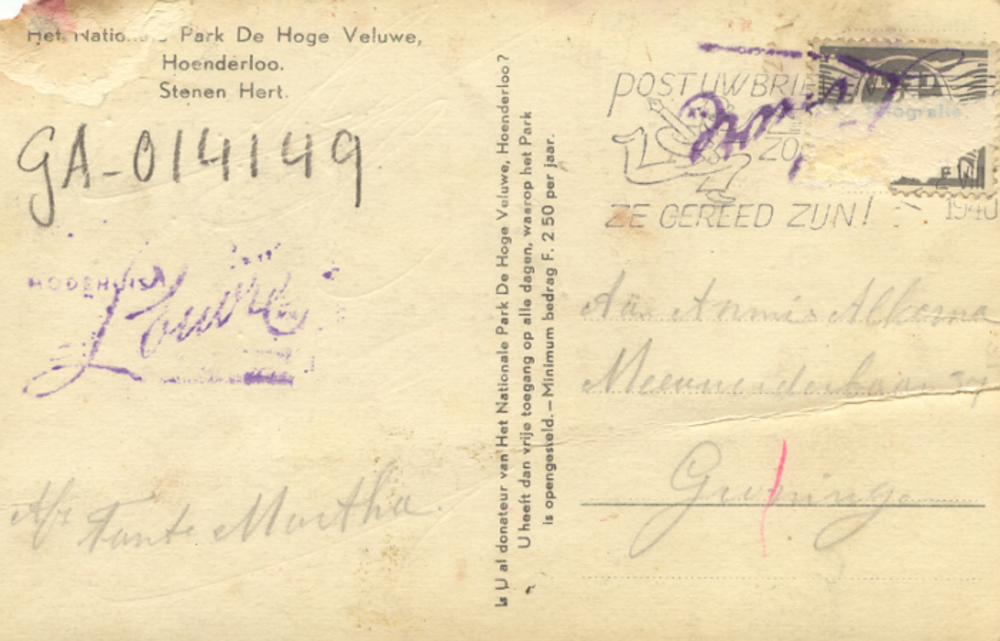 Het Nationale Park De Hoge Veluwe,
Hoenderloo.
Stenen Hert.
GA-014149
MODEHUIS
Louvre
Afz Tante Martha.
Is U al donateur van Het Nationale Park De Hoge Veluwe, Hoenderloo?
U heeft dan vrije toegang op alle dagen, waarop het Park
is opengesteld. — Minimum bedrag F. 2.50 per jaar.
POST UW BRIE
ZO
ZE GEREED ZIJN!
1940
Aan Annie Alkema
Groningen